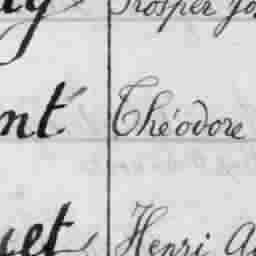 Prosper
nt Théodore
uet Henri